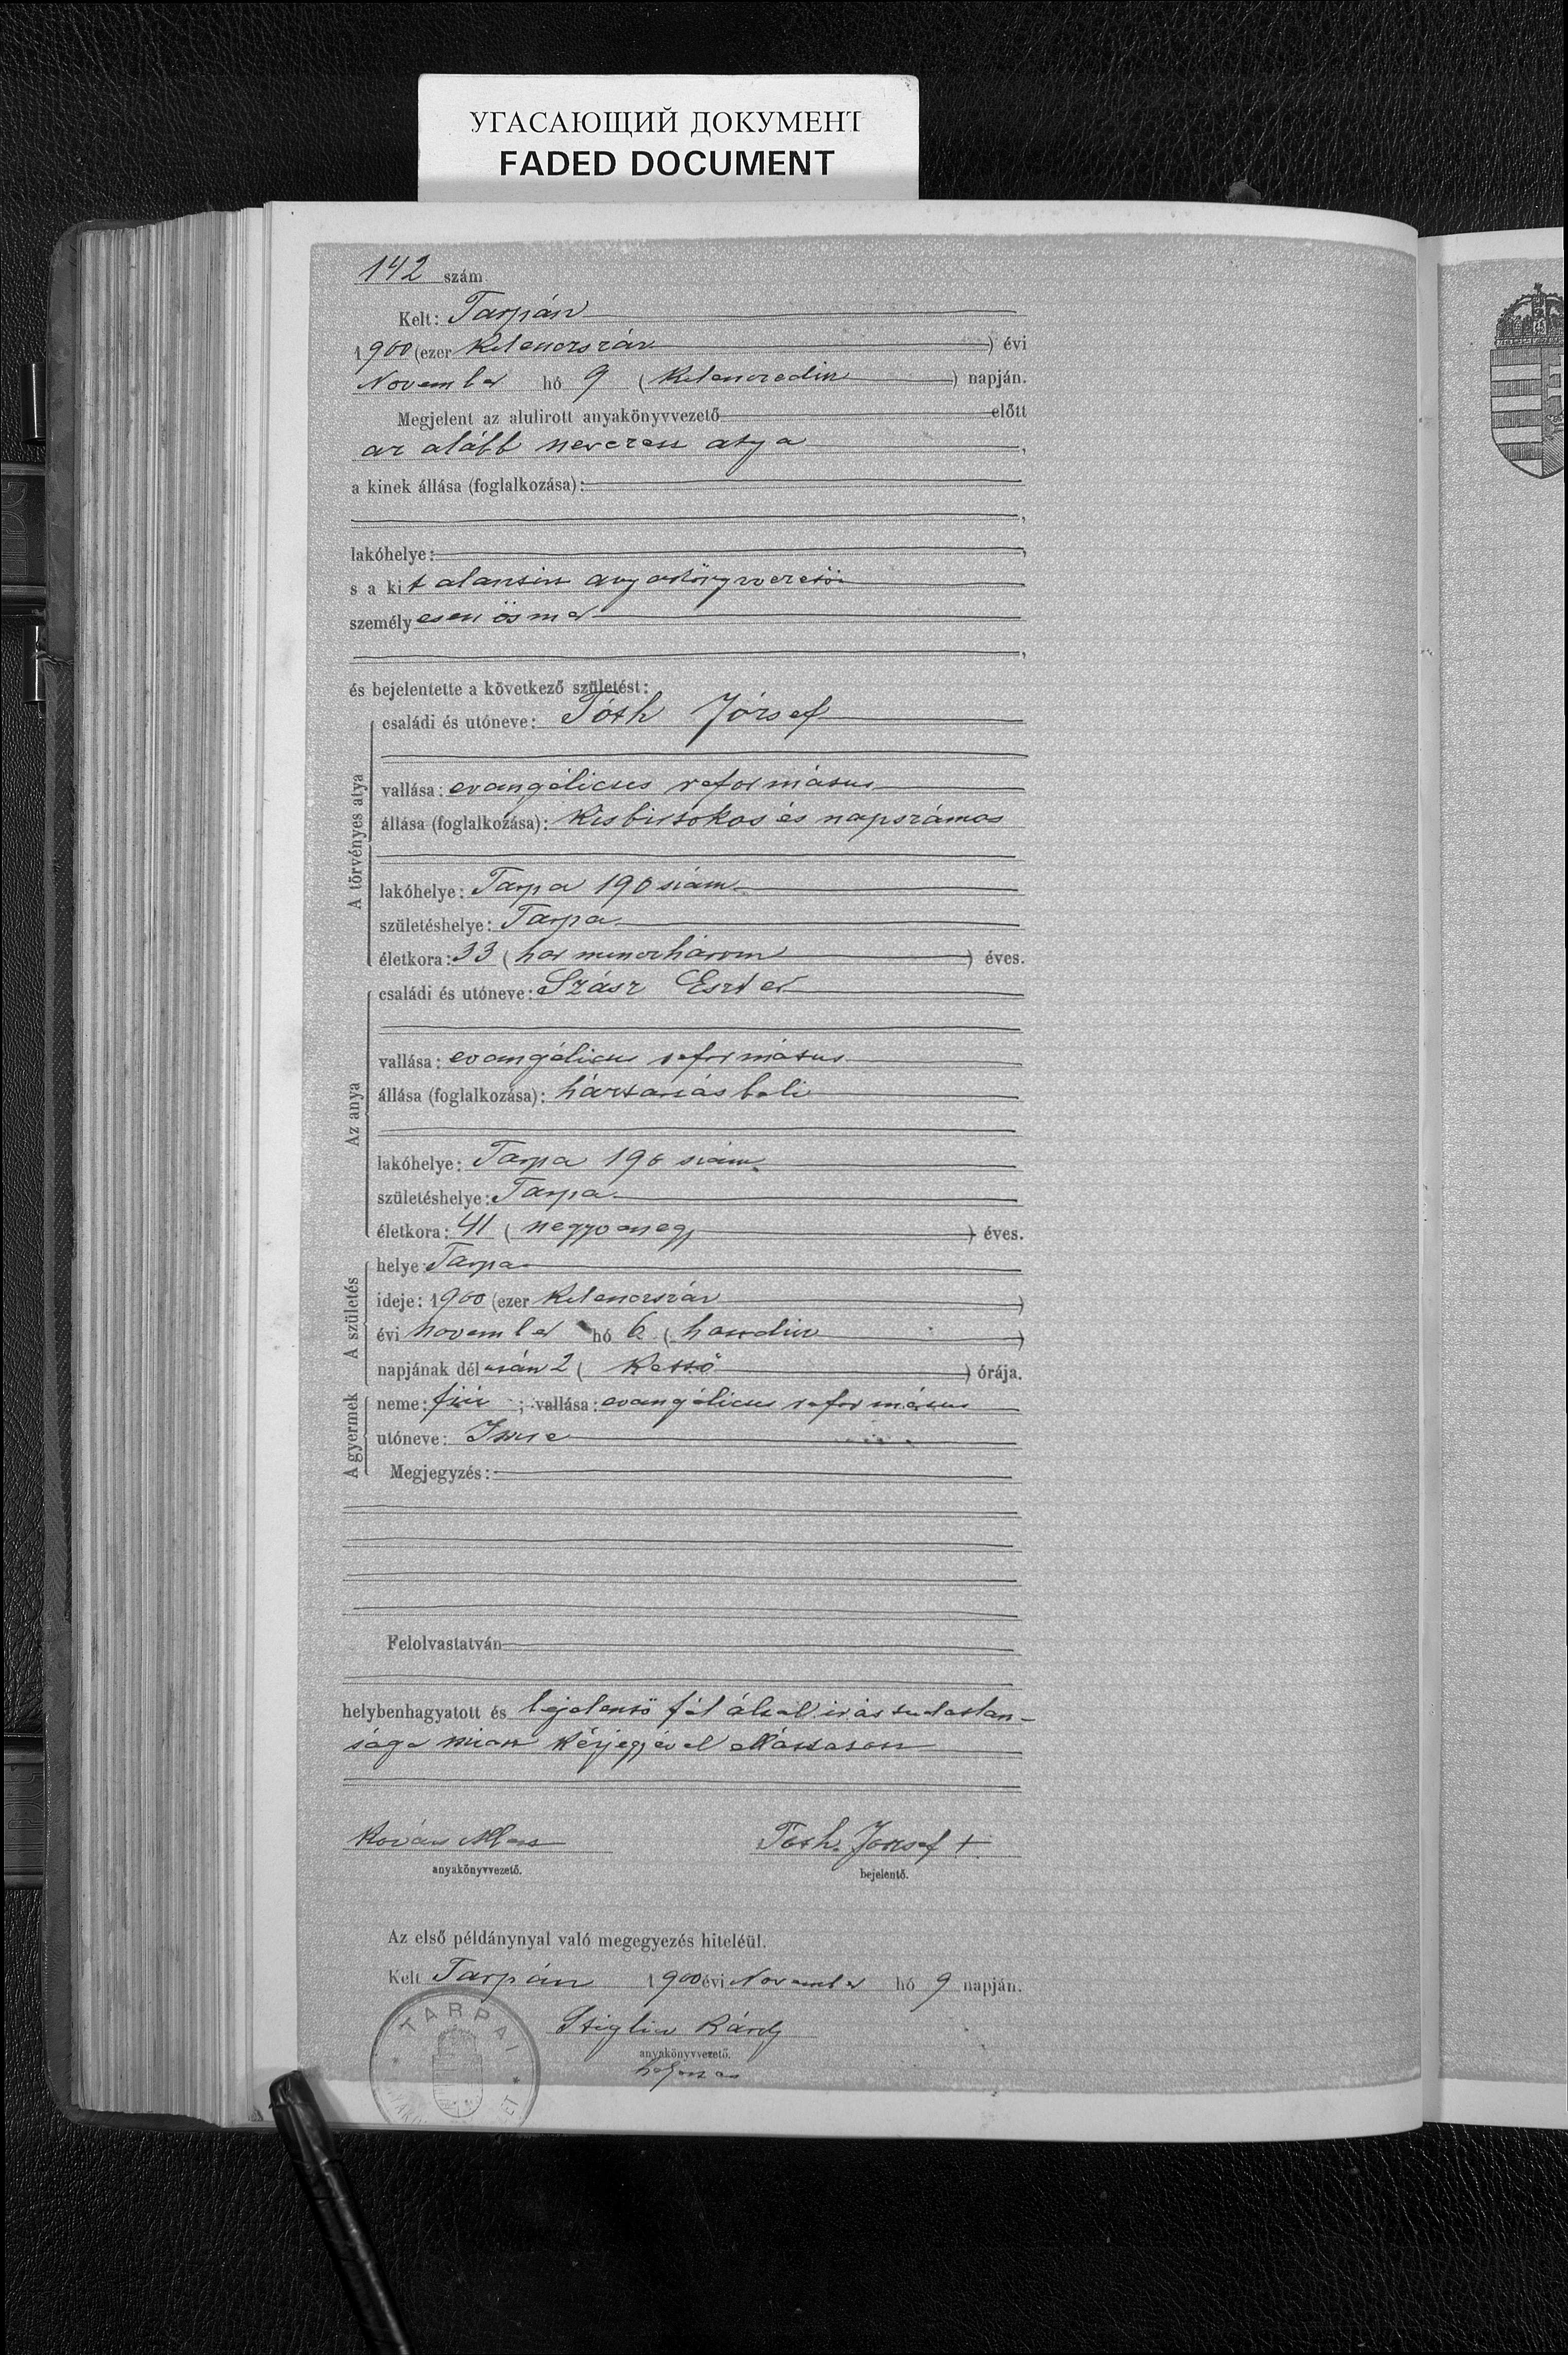 УГАСАЮЩИЙ ДОКУМЕНТ
FADED DOCUMENT
142 szám
Kelt: Tarpán
1900 (ezer kilenczszáz) évi
November hó 9 (kilenczedik) napján.
Megjelent az alulirott anyakönyvvezető előtt
az alább nevezett atya,
a kinek állása (foglalkozása):
lakóhelye:
s a kit alantirt anyakönyvvezető
személyesen ösmer
és bejelentette a következő születést:
A törvényes atya
családi és utóneve: Tóth József
vallása: evangélicus református
állása (foglalkozása): kisbirtokos és napszámos
lakóhelye: Tarpa 190 szám
születéshelye: Tarpa
életkora: 33 (harminczhárom) éves.
Az anya
családi és utóneve: Szász Eszter
vallása: evangélicus református
állása (foglalkozása): háztartásbeli
lakóhelye: Tarpa 190 szám
születéshelye: Tarpa
életkora: 41 (negyvenegy) éves.
A születés
helye: Tarpa
ideje: 1900 (ezer kilenczszáz)
évi november hó 6 (hatodik)
napjának délután 2 (kettő) órája.
A gyermek
neme: fiú; vallása: evangélicus református
utóneve: Imre
Megjegyzés:
Felolvastatván
helybenhagyatott és bejelentő fél által irástudatlan-
sága miatt kézjegyével ellátatott
Tóth József +
anyakönyvvezető. bejelentő.
Az első példánynyal való megegyezés hiteléül.
Kelt Tarpán 1900 évi November hó 9 napján.
TARPAI
anyakönyvvezető.
helyettes